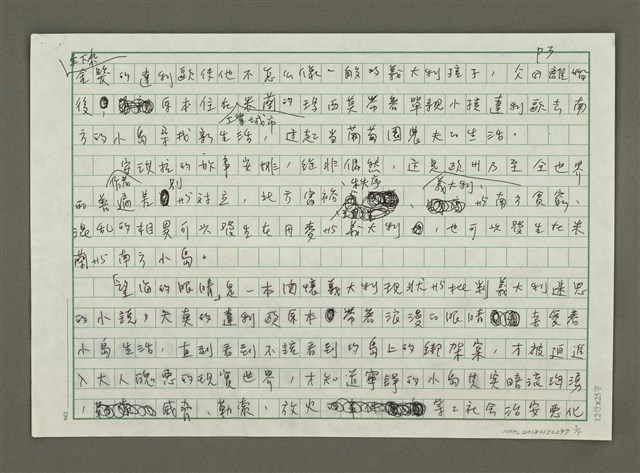 P3
金髮的達利歐使他不怎么像一般的義大利孩子，父母離婚
後，原本住在米蘭的瑪西莫帶著單親小孩達利歐去南
工業城市
方的小島尋找新生活，過起當葡萄園農夫的生活。
作者
安琪拉的故事安排，絕非偶然，這是歐洲乃至全世界
的普遍差別與對立，北方富裕、秩序
義大利、
與南方貧窮、
混亂的相異可以發生在丹麥與義大利，也可以發生在米
蘭與南方小島。
「望海的眼睛」是一本關懷義大利現狀與批判義大利迷思
的小說，天真的達利歐原本帶著浪漫的眼睛喜愛著
小島生活，直到看到不該看到的島上的綁架案，才被迫進
入大人醜惡的現實世界，才知道寧靜的小島其實暗流洶湧
，威脅、勒索、放火等等社會治安惡化
NO.
12行×25字
NMTL20180130297 3/5